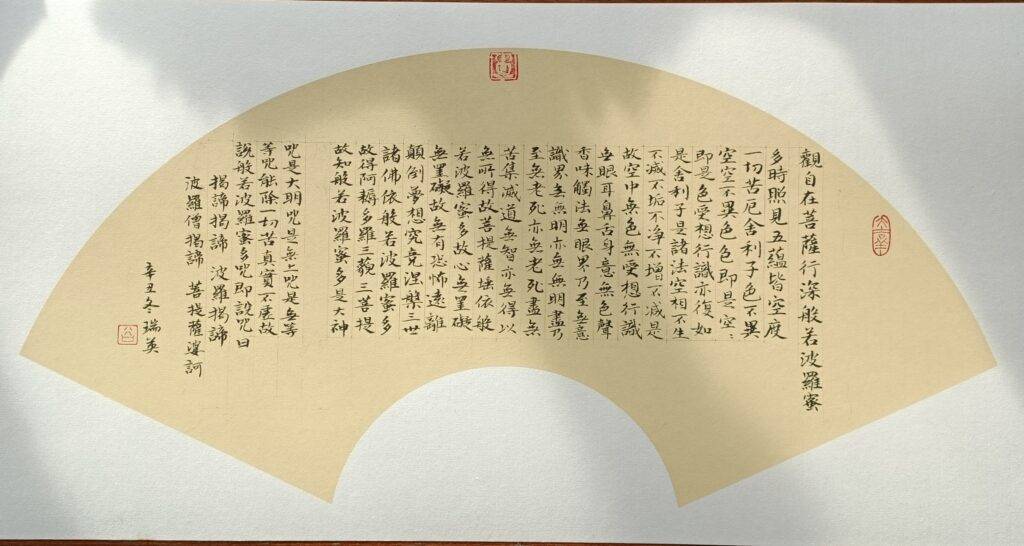 觀自在菩薩行深般若波羅蜜
多時照見五蘊皆空度
一切苦厄舍利子色不異
空空不異色色即是空:
即是色受想行識亦復如
是舍利子是諸法空相不生
不滅不垢不淨不增不減是
故空中無色無受想行識
無眼耳鼻舌身意無色聲
香味觸法無眼界乃至無意
識界無無明亦無無明盡乃
至無老死亦無老死盡無
苦集滅道無智亦無得以
無所得故菩提薩埵依般
若波羅蜜多故心無罣礙
無罣礙故無有恐怖遠離
顛倒夢想究竟涅槃三世
諸佛依般若波羅蜜多
故得阿耨多羅三藐三菩提
故知般若波羅蜜多是大神
呪是大明呪是無上呪是無等
等呪能除一切苦真實不虛故
說般若波羅蜜多呪即說呪曰
揭諦揭諦 波羅揭諦
波羅僧揭諦 菩提薩婆訶
辛丑冬 瑞英